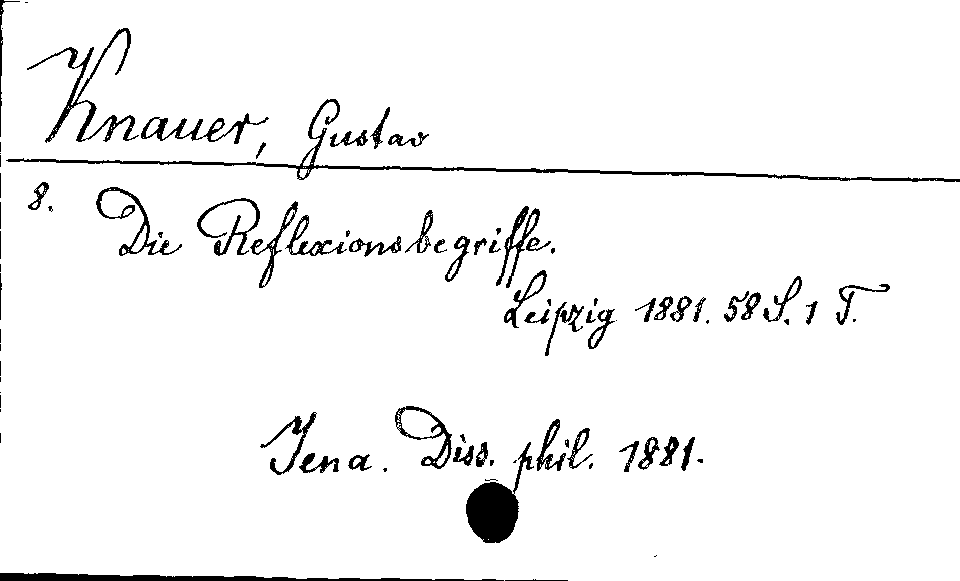 Knauer, Gustav
8. Die Reflexionsbegriffe.
Leipzig 1881. 58 S. 1 T.
Jena. Diss. phil. 1881.